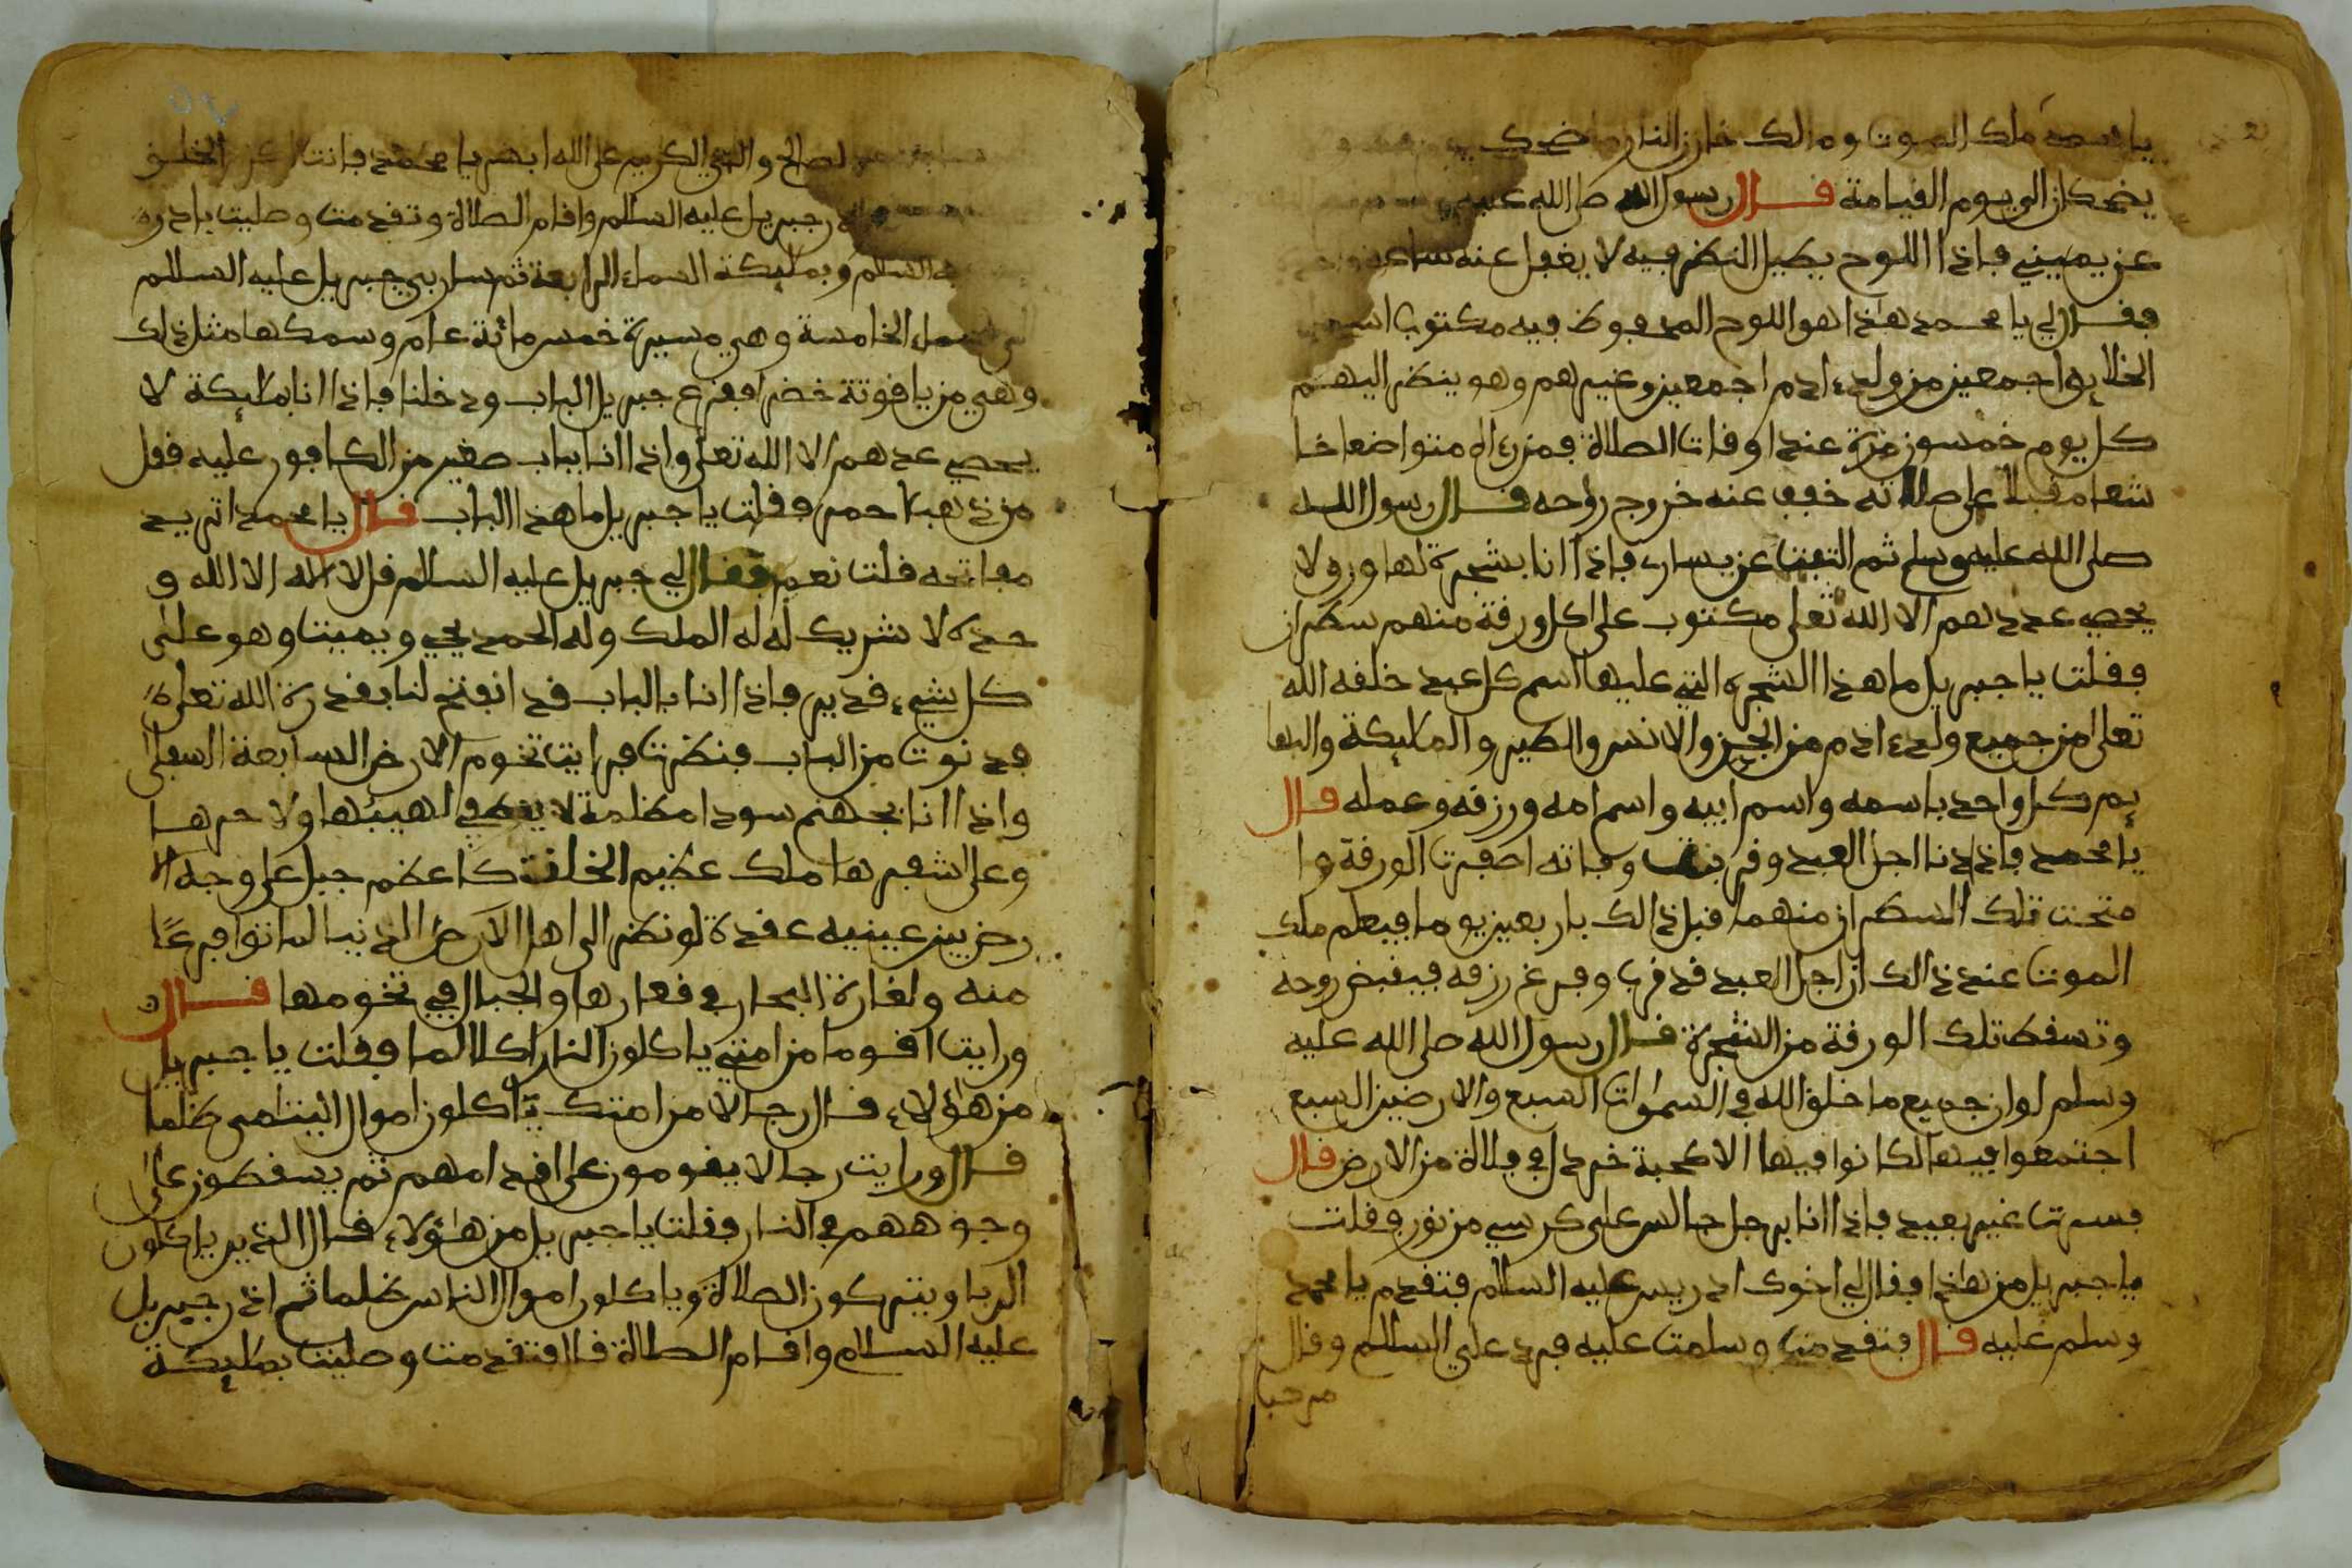 يا محمد ملك الموت ومالك خازن النار ما ضحك
يضحكان الى يوم القيامة قال رسول الله صلى الله عليه
عن يميني فاذا اللوح يطيل النظر فيه لا يغفل عنه ساعة واحدة
فقال لي يا محمد هذا هو اللوح المحفوظ فيه مكتوب اسم
الخلايق اجمعين من ولد ءادم اجمعين وغيرهم وهو ينظر اليهم
كل يوم خمسون مرة عند اوقات الصلاة فمن رءاه متواضعا خا
شعا مقبلا على صلاته خفف عنه خروج روحه قال رسول الله
صلى الله عليه وسلم ثم التفت عن يساره فاذا انا بشجرة لها ورق لا
يحصي عددهم الا الله تعلى مكتوب على كل ورقة منهم سطران
فقلت يا جبريل ما هذا الشجره التي عليها اسم كل عبد خلقه الله
تعلى من جميع ولد ءادم من الجن والانس والطير والمليكة والبها
يم كل واحد باسمه واسم ابيه واسم امه ورزقه وعمله قال
يا محمد فاذا دنا اجل العبد وقربت وفاته اصفرت الورقة وا
متحت تلك السطران منهما قبل ذالك باربعين يوما فيعلم ملك
الموت عند ذالك ان اجل العبد قد قرب وفرغ رزقه فيقبض روحه
وتسقط تلك الورقة من الشجرة قال رسول الله صلى الله عليه
وسلم لو ان جميع ما خلق الله في السموات السبع والارضين السبع
اجتمعوا فيها لكانوا فيها الا كحبة خردل في فلاة من الارض قال
فسرت غير بعيد فاذا انا برجل جالس على كرسي من نور فقلت
يا جبريل من هذا فقال لي اخوك ادريس عليه السلام فتقدم يا محمد
وسلم عليه قال فتقدمت وسلمت عليه فرد علي السلام وقال
مرحبا
الصالح والنبي الكريم على الله ابشر يا محمد فانت اكرم الخلق
جبريل عليه السلام واقام الصلاة وتقدمت وصليت بادريـ
ـه السلام وبمليكة السماء الرابعة ثم سار بي جبريل عليه السلام
السماء الخامسة وهي مسيرة خمس مائة عام وسمكها مثل ذلك
وهي من ياقوتة خضرا فقرع جبريل الباب ودخلنا فاذا انا بمليكة لا
يحصي عدهم الا الله تعلى واذا انا بباب صغير من الكافور عليه قفل
من ذهب احمر فقلت يا جبريل ما هذا الباب قال يا محمد اتريد
مفاتحه قلت نعم فقال لي جبريل عليه السلام قل لا اله الا الله و
حده لا شريك له له الملك وله الحمد يحي ويميت وهو على
كل شيء قدير فاذا انا بالباب قد انفتح لنا بقدرة الله تعلى
فدنوت من الباب فنظرت فرايت تخوم الارض السابعة السفلى
واذا انا بجهنم سودا مظلمة لا يطفي لهيبها ولا حرها
وعلى شفيرها ملك عظيم الخلقة كاعظم جبل على وجه الا
رض بين عينيه عقدة لو نظر الى اهل الارض الدنيا لماتوا فزعًا
منه ولغارة البحار في قعارها والجبال في تخومها قال
ورايت اقوما من امتي ياكلون النار اكلا لما فقلت يا جبريل
من هؤلاء قال رجالا من امتك يأكلون اموال اليتامى ظلما
قال ورايت رجالا يقومون على اقدامهم ثم يسقطون على
وجوههم في النار فقلت يا جبريل من هؤلاء قال الذين ياكلون
الربا ويتركون الصلاة وياكلون اموال الناس ظلما ثم اذن جبريل
عليه السلام واقام الصلاة قال فتقدمت وصليت بمليكة